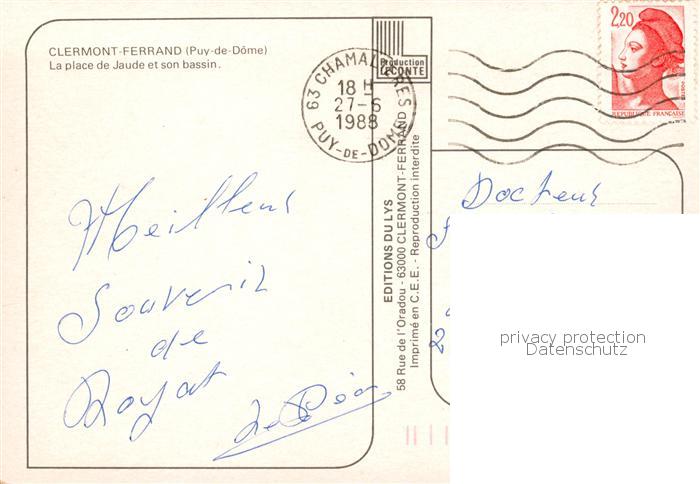 CLERMONT-FERRAND (Puy-de-Dôme)
La place de Jaude et son bassin.
Production
LECONTE
63 CHAMALIERES
18 H
27-6
1988
PUY-DE-DOME
2,20
REPUBLIQUE FRANÇAISE
EDITIONS DU LYS
58 Rue de l'Oradou - 63000 CLERMONT-FERRAND
Imprimé en C.E.E. - Reproduction interdite
Meilleur
Souvenir
de
Royat
Docteur
2
privacy protection
Datenschutz